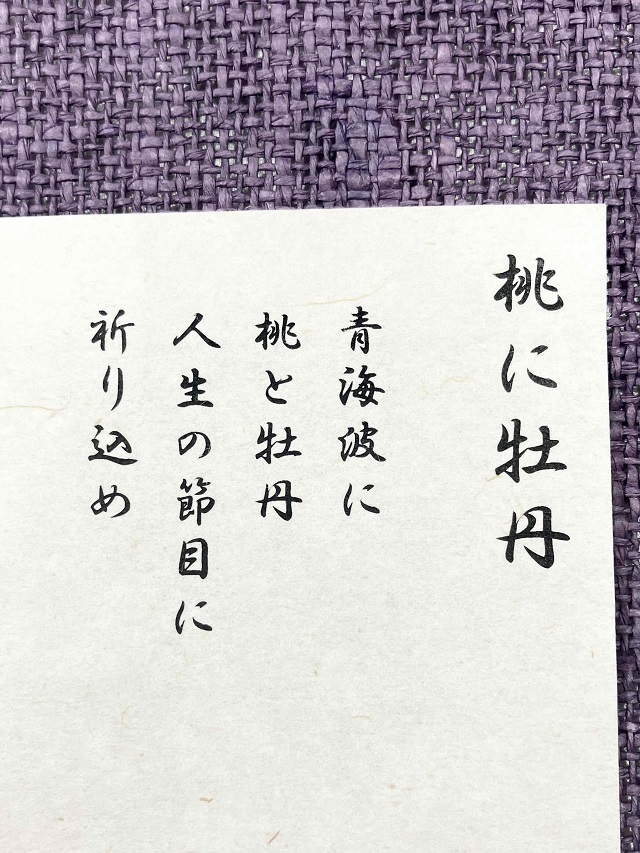 桃に牡丹
青海波に
桃と牡丹
人生の節目に
祈り込め